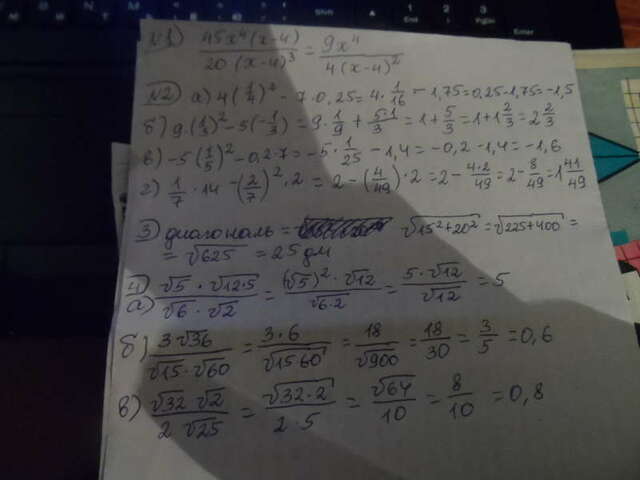 №1) 45x⁴(x-4) / 20(x-4)³ = 9x⁴ / 4(x-4)²
№2) а) 4(1/4)² - 7·0,25 = 4·1/16 - 1,75 = 0,25-1,75 = -1,5
б) 9·(1/3)² - 5(-1/3) = 9·1/9 + 5·1/3 = 1 + 5/3 = 1 + 1 2/3 = 2 2/3
в) -5(1/5)² - 0,2·7 = -5·1/25 - 1,4 = -0,2-1,4 = -1,6
г) 1/7·14 - (2/7)²·2 = 2 - (4/49)·2 = 2 - 4·2/49 = 2 - 8/49 = 1 41/49
3) диагональ = √15²+20² = √225+400 =
= √625 = 25 дм
4)
а) √5·√12·5 / √6·√2 = (√5)²·√12 / √6·2 = 5·√12 / √12 = 5
б) 3√36 / √15·√60 = 3·6 / √15 60 = 18 / √900 = 18/30 = 3/5 = 0,6
в) √32 √2 / 2√25 = √32·2 / 2·5 = √64 / 10 = 8/10 = 0,8
Shift
1
End
2
3
PgDn
Enter